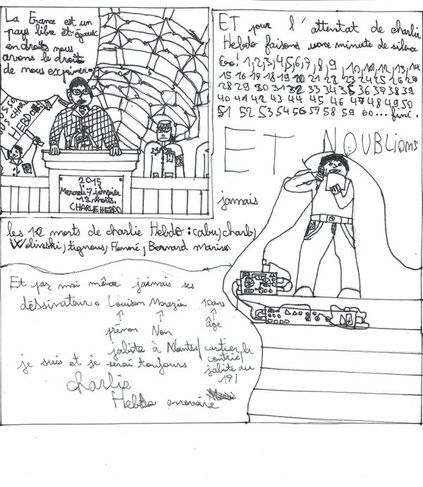 La France est un
pays libre et égaux
en droits nous
avons le droits
de nous exprimer
HEBDO
2015
Mercredi 7 janvier
12 morts
CHARLIE HEBDO
ET pour l'attentat de charlie
Hebdo faisons une minute de silence
Go! 1,2,3,4,5,6,7,8,9,10,11,12,13,14
15 16 17 18 19 20 21 22 23 24 25 26 27
28 29 30 31 32 33 34 35 36 37 38 39
40 41 42 43 44 45 46 47 48 49 50
51 52 53 54 56 57 58 59 60... fini.
ET N'OUBLIONS
jamais
les 12 morts de charlie Hebdo: cabu, charb,
Wolinski, tignous, Honoré, Bernard maris
Et par moi même jamais ses
déssinateurs Louison 10ans
prénom Nom âge
j'abite à Nantes
je suis et je serai toujours
charlie
Hebdo